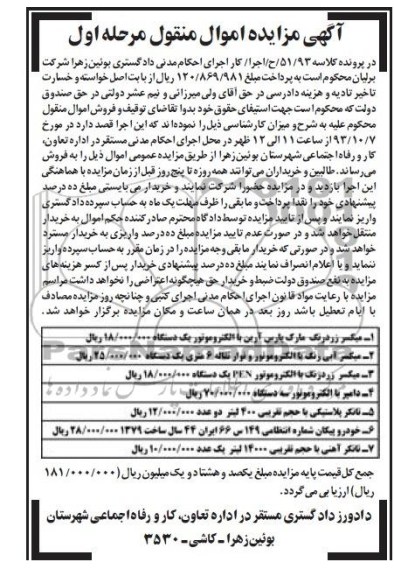 آگهی مزایده اموال منقول مرحله اول
در پرونده کلاسه ۵۱/۹۳/ح/اجرا/ کار اجرای احکام مدنی دادگستری بوئین زهرا شرکت
برلیان محکوم است به پرداخت مبلغ ۱۲۰/۸۶۹/۹۸۱ ریال از بابت اصل خواسته و خسارت
تاخیر تادیه و هزینه دادرسی در حق آقای ولی میرزائی و نیم عشر دولتی در حق صندوق
دولت که محکوم است جهت استیفای حقوق خود بدوا تقاضای توقیف و فروش اموال منقول
محکوم علیه به شرح و میزان کارشناسی ذیل را نموده اند که این اجرا قصد دارد در مورخ
۹۳/۱۰/۷ از ساعت ۱۱ الی ۱۲ ظهر در محل اجرای احکام مدنی مستقر در اداره تعاون،
کار و رفاه اجتماعی شهرستان بوئین زهرا از طریق مزایده عمومی اموال ذیل را به فروش
می رساند. طالبین و خریداران می توانند همه روزه تا پنج روز قبل از زمان مزایده با هماهنگی
این اجرا بازدید و در مزایده حضورا شرکت نمایند و خریدار می بایستی مبلغ ده درصد
پیشنهادی خود را نقدا پرداخت و مابقی را ظرف مهلت یک ماه به حساب سپرده دادگستری
واریز نماید و پس از تایید مزایده توسط دادگاه محترم صادرکننده حکم اموال به خریدار
منتقل خواهد شد و در صورت عدم تایید مزایده مبلغ ده درصد واریزی به خریدار مسترد
خواهد شد و در صورتی که خریدار مابقی وجه مزایده را در زمان مقرر به حساب سپرده واریز
ننماید و یا اعلام انصراف نمایند مبلغ ده درصد پیشنهادی خریدار پس از کسر هزینه های
مزایده به نفع صندوق دولت ضبط و خریدار حق هیچگونه اعتراضی را نخواهد داشت مراسم
مزایده با رعایت مواد قانون اجرای احکام مدنی اجرای کتبی و چنانچه روز مزایده مصادف
با ایام تعطیل باشد روز بعد در همان ساعت و مکان مزایده برگزار خواهد شد.
۱- میکسر زردرنگ مارک پارس آرین با الکتروموتور یک دستگاه ۱۸/۰۰۰/۰۰۰ ریال
۲- میکسر آبی رنگ با الکتروموتور و نوار نقاله ۶ متری یک دستگاه ۲۵/۰۰۰/۰۰۰ ریال
۳- میکسر زردرنگ با الکتروموتور PEN یک دستگاه ۱۸/۰۰۰/۰۰۰ ریال
۴- دامپر با الکتروموتور سه دستگاه ۷۰/۰۰۰/۰۰۰ ریال
۵- تانکر پلاستیکی با حجم تقریبی ۴۰۰ لیتر دو عدد ۱۲/۰۰۰/۰۰۰ ریال
۶- خودرو پیکان شماره انتظامی ۱۴۹ س ۶۶ ایران ۴۴ سال ساخت ۱۳۷۹ ۲۸/۰۰۰/۰۰۰ ریال
۷- تانکر آهنی با حجم تقریبی ۱۴۰۰۰ لیتر یک عدد ۱۰/۰۰۰/۰۰۰ ریال
جمع کل قیمت پایه مزایده مبلغ یکصد و هشتاد و یک میلیون ریال (۱۸۱/۰۰۰/۰۰۰
ریال) ارزیابی می گردد.
دادورز دادگستری مستقر در اداره تعاون، کار و رفاه اجتماعی شهرستان
بوئین زهرا ـ کاشی ـ ۳۵۳۰